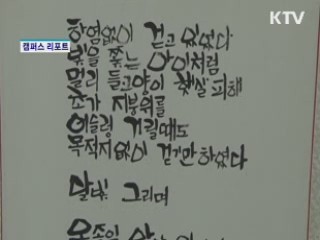 KTV
캠퍼스 리포트
하염없이 걷고 있었다
빛을 쫓는 아이처럼
멀리 들고양이 햇살 피해
초가 지붕위를
어슬렁 거릴때도
목적지없이 걷기만 하였다
달빛 그리며
온종일